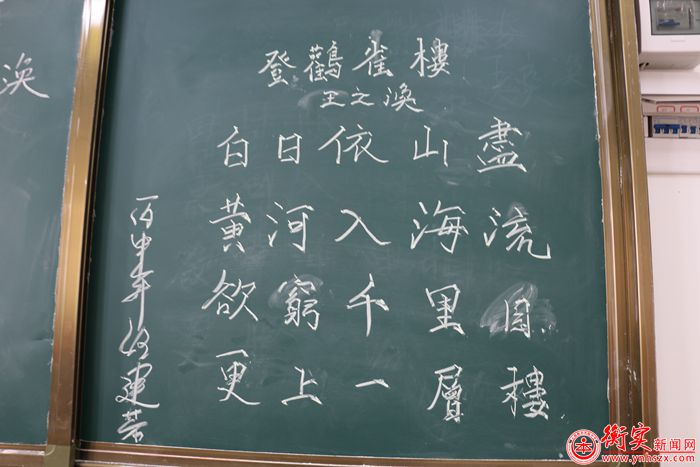 登鸛雀樓
王之渙
白日依山盡
黃河入海流
欲窮千里目
更上一層樓
丙申年 建著
渙
衡实新闻网
www.ynhszx.com